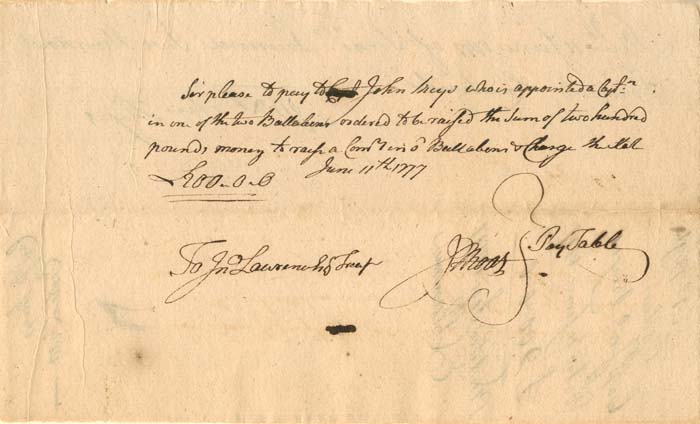 Sir please to pay to Capt John Keyes who is appointed a Capt:n
in one of the two Battalions ordered to be raised the sum of two hundred
pounds money to raise a Com:y in sd Battalion & Charge the State
June 11th 1777
£200-0-0
Pay Table
To Jno Lawrence Esq Treas